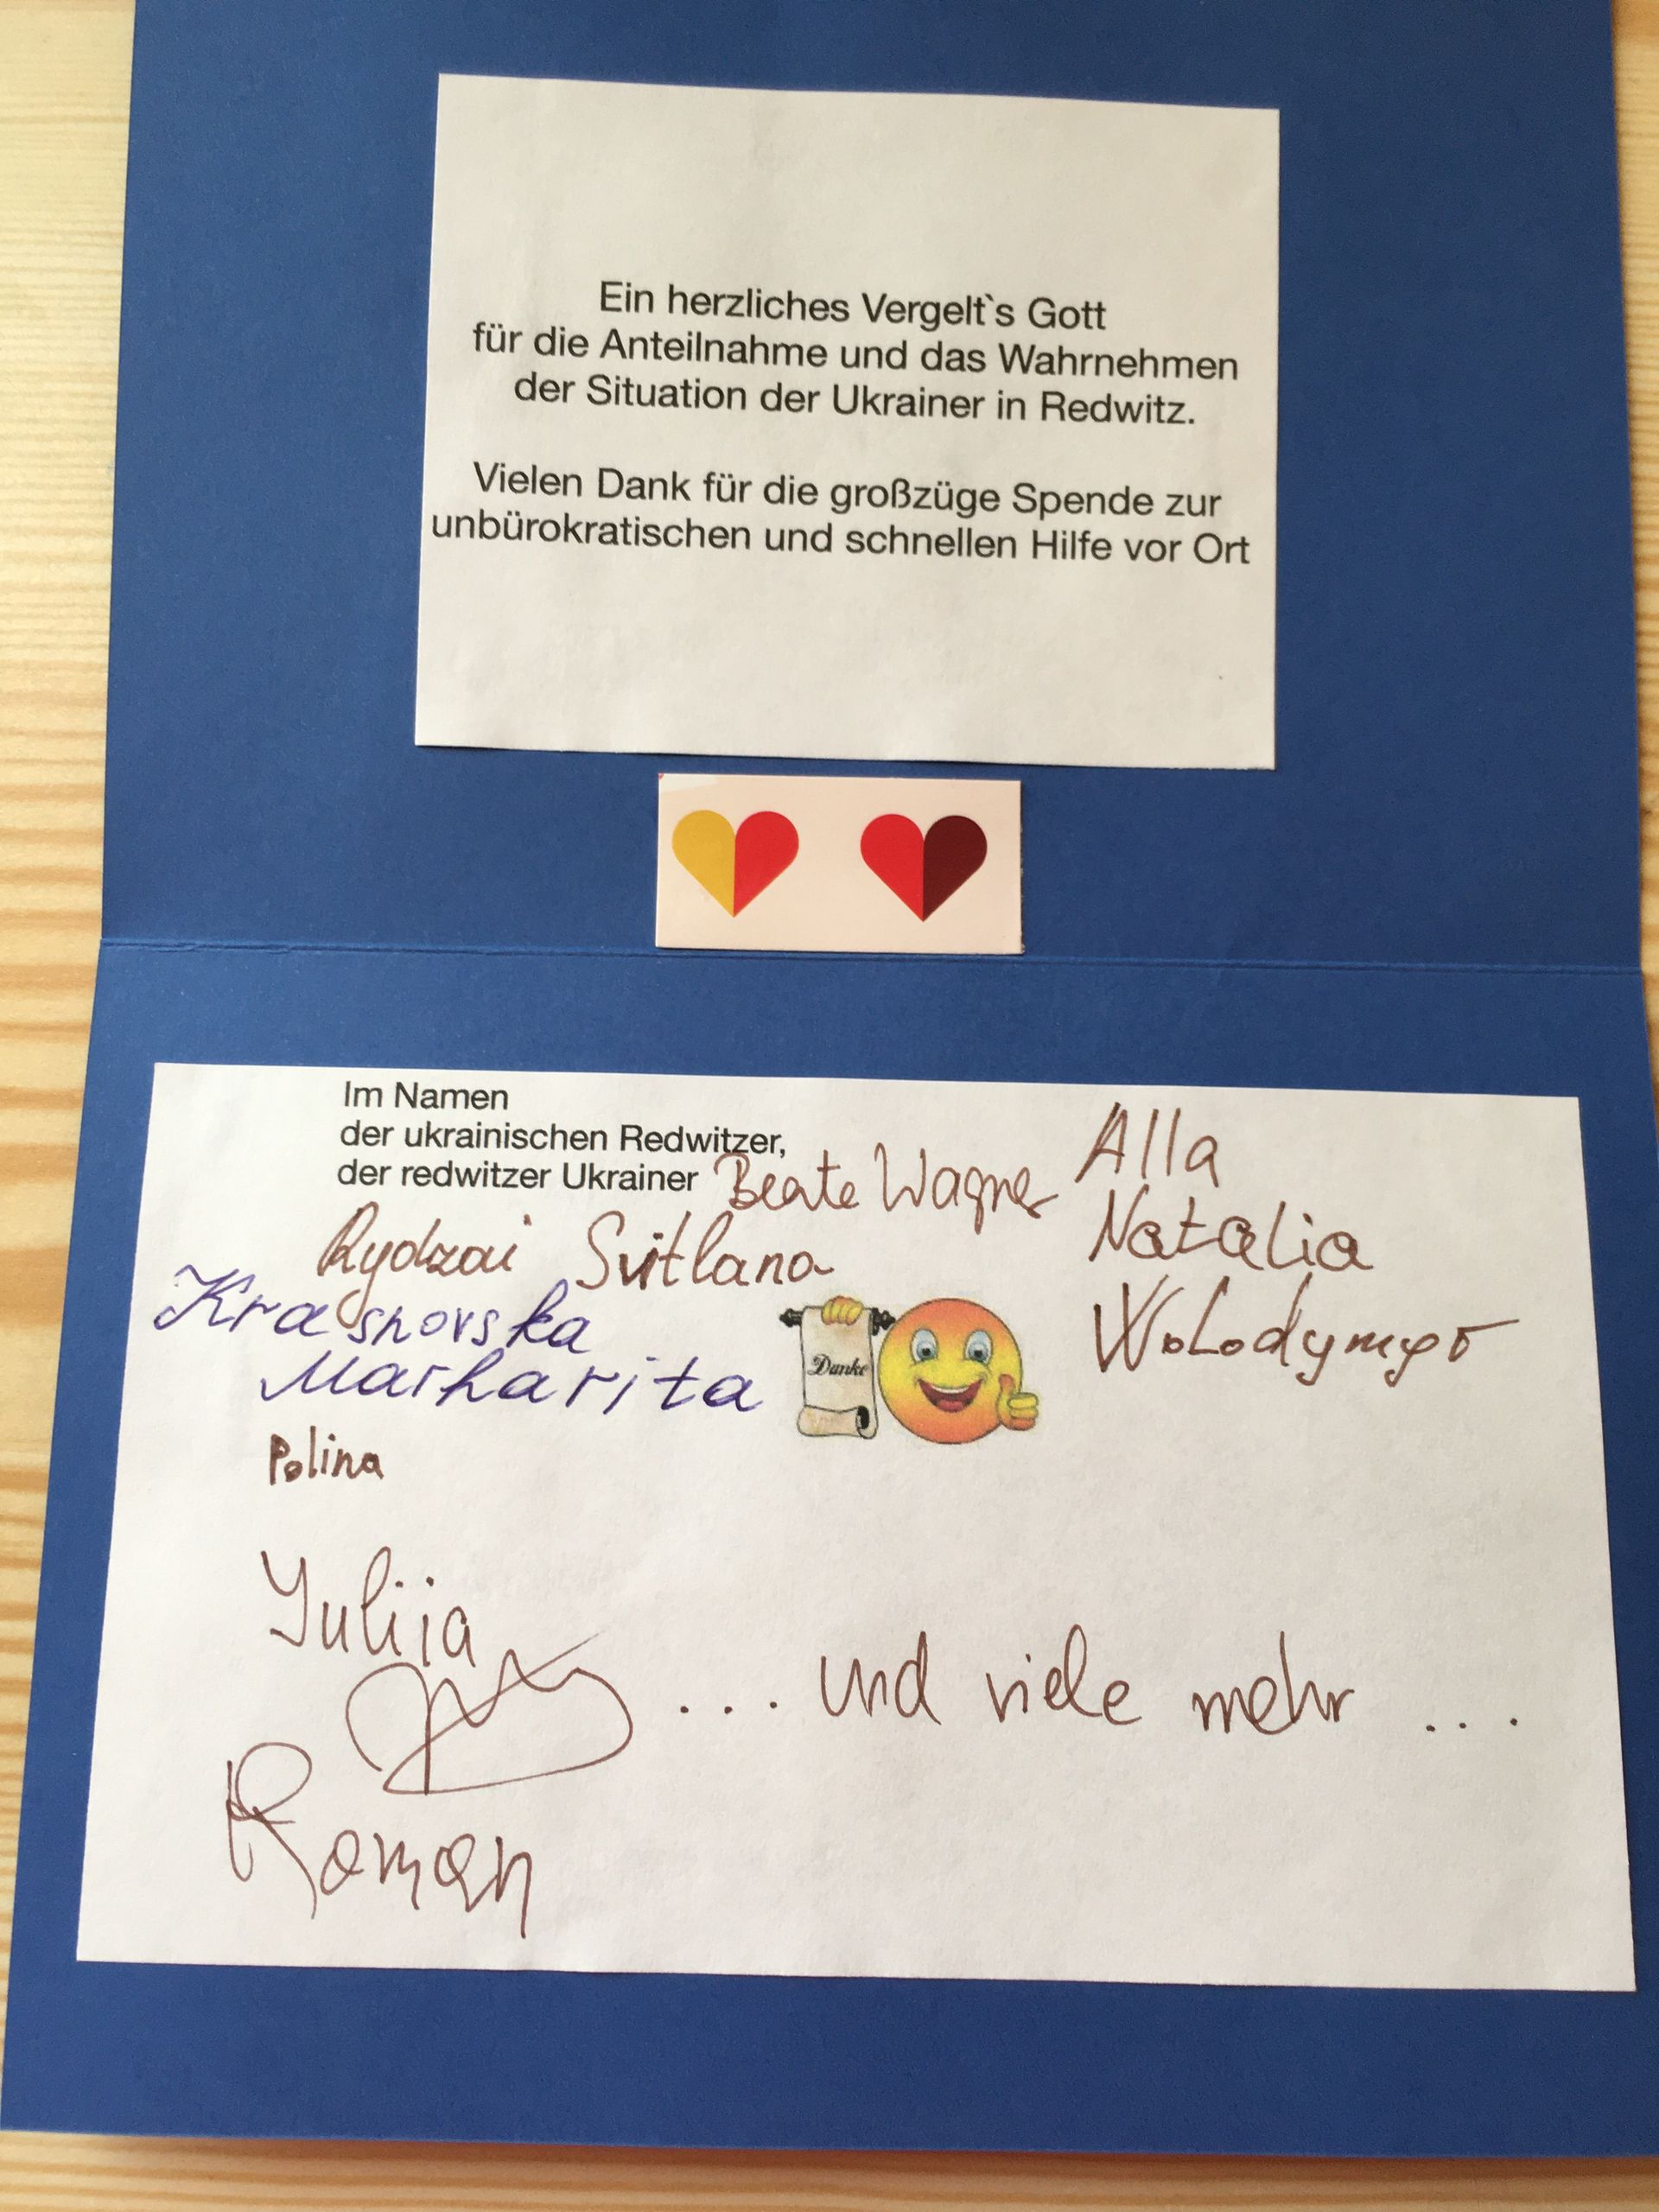 Ein herzliches Vergelt`s Gott
für die Anteilnahme und das Wahrnehmen
der Situation der Ukrainer in Redwitz.
Vielen Dank für die großzüge Spende zur
unbürokratischen und schnellen Hilfe vor Ort
Im Namen
der ukrainischen Redwitzer,
der redwitzer Ukrainer
Beate Wagner
Alla
Natalia
Wolodymyr
Rydzai Svitlana
Krasnovska
Marharita
Danke
Polina
Yuliia
... und viele mehr ...
Roman